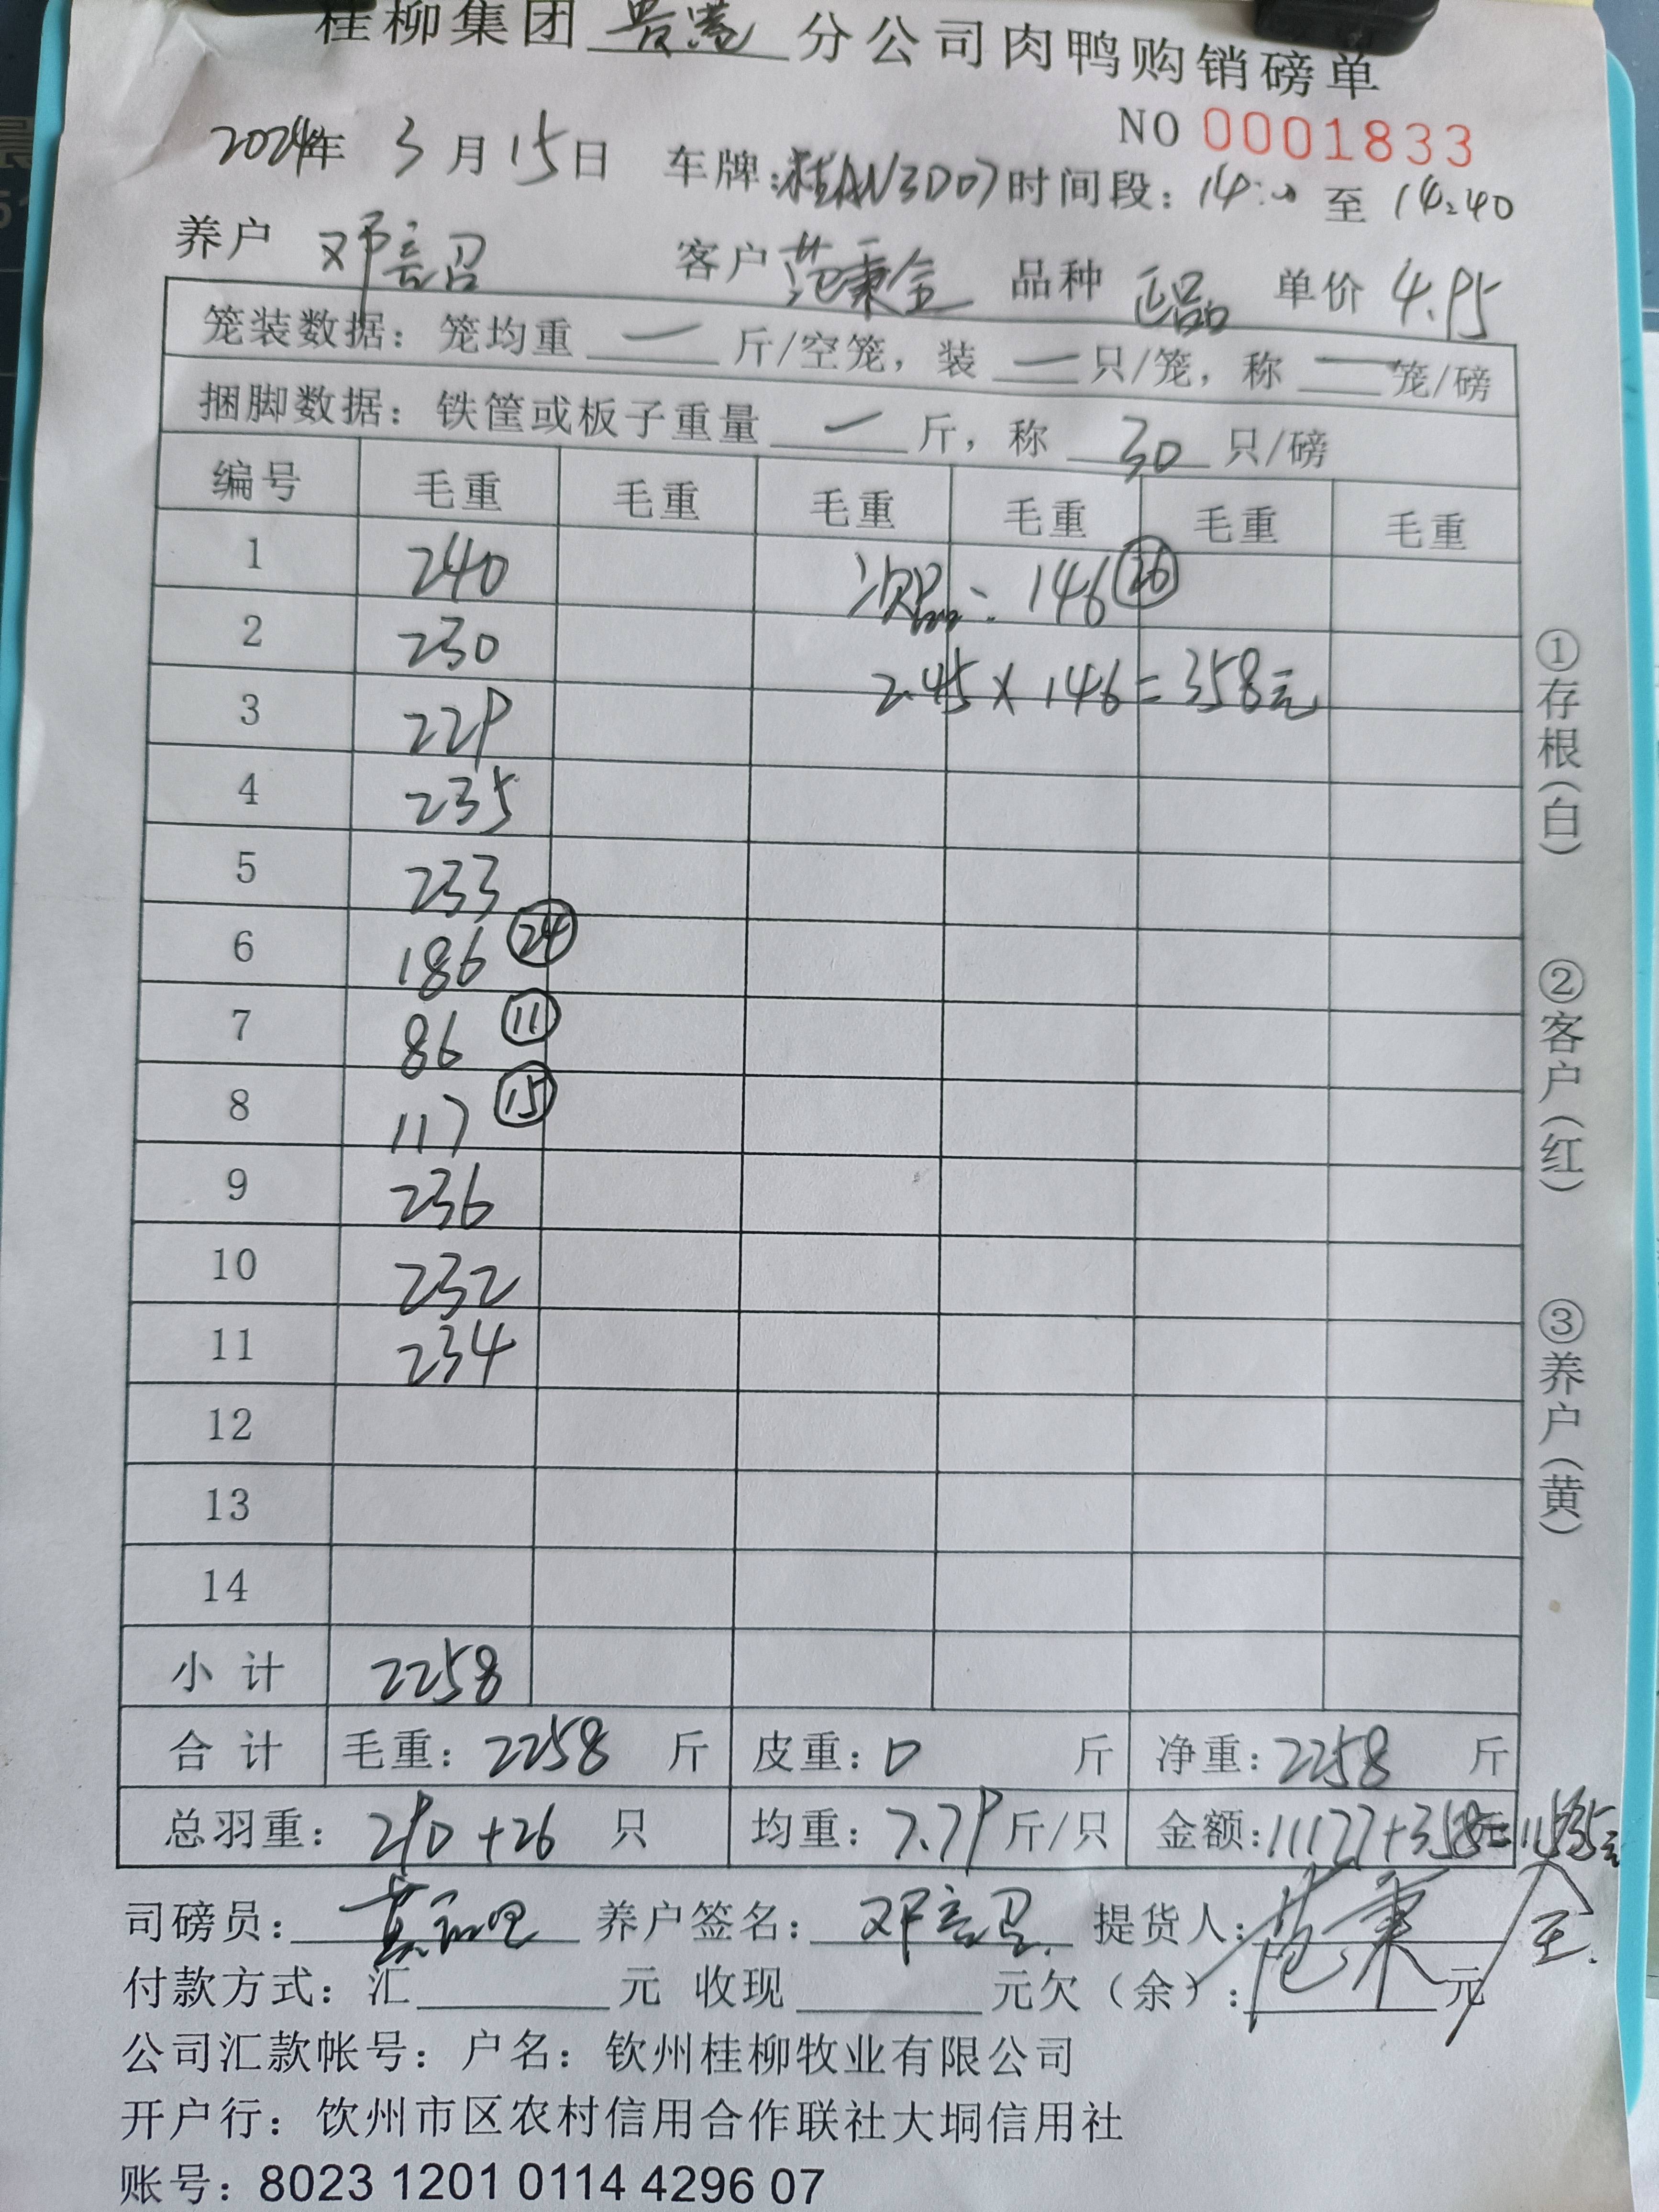 桂柳集团 贵港 分公司肉鸭购销磅单
NO 0001833
2024年 3月15日 车牌:桂AN3D07 时间段: 14:00 至 14:40
养户 邓言召 客户 范秉全 品种 正品 单价 4.95
笼装数据: 笼均重 — 斤/空笼, 装 — 只/笼, 称 — 笼/磅
捆脚数据: 铁筐或板子重量 — 斤, 称 30 只/磅
编号 毛重 毛重 毛重 毛重 毛重 毛重
1 240 次品: 146 ㉖
2 230 2.45×146=358元
3 229
4 235
5 233
6 186 ㉔
7 86 ⑪
8 117 ⑮
9 236
10 232
11 234
12
13
14
小计 2258
合计 毛重: 2258 斤 皮重: 0 斤 净重: 2258 斤
总羽重: 290+26 只 均重: 7.79 斤/只 金额: 11177+358=11535元
司磅员: 养户签名: 邓言召 提货人: 范秉全
付款方式: 汇 元 收现 元欠(余): 元
公司汇款帐号: 户名: 钦州桂柳牧业有限公司
开户行: 钦州市区农村信用合作联社大垌信用社
账号: 8023 1201 0114 4296 07
①存根(白) ②客户(红) ③养户(黄)